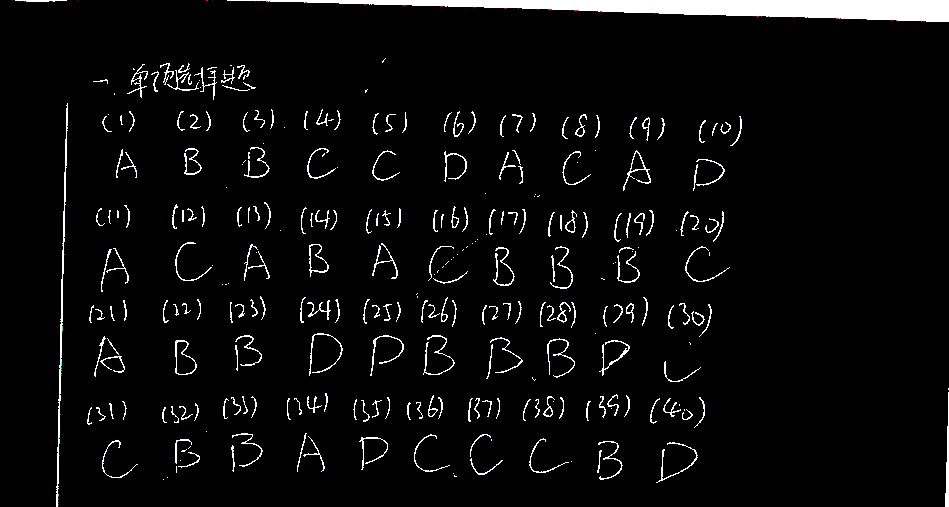 一、单项选择题
(1) (2) (3) (4) (5) (6) (7) (8) (9) (10)
A B B C C D A C A D
(11) (12) (13) (14) (15) (16) (17) (18) (19) (20)
A C A B A C B B B C
(21) (22) (23) (24) (25) (26) (27) (28) (29) (30)
A B B D D B B B D C
(31) (32) (33) (34) (35) (36) (37) (38) (39) (40)
C B B A D C C C B D